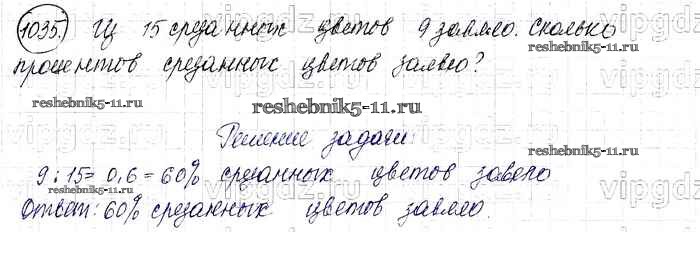 1035. Из 15 срезанных цветов 9 завяло. Сколько
процентов срезанных цветов завяло?
reshebnik5-11.ru
reshebnik5-11.ru
reshebnik5-11.ru
Решение задачи:
9 : 15 = 0,6 = 60% срезанных цветов завяло
Ответ: 60% срезанных цветов завяло.
vipgdz.ru
vipgdz.ru
vipgdz.ru
vipgdz.ru